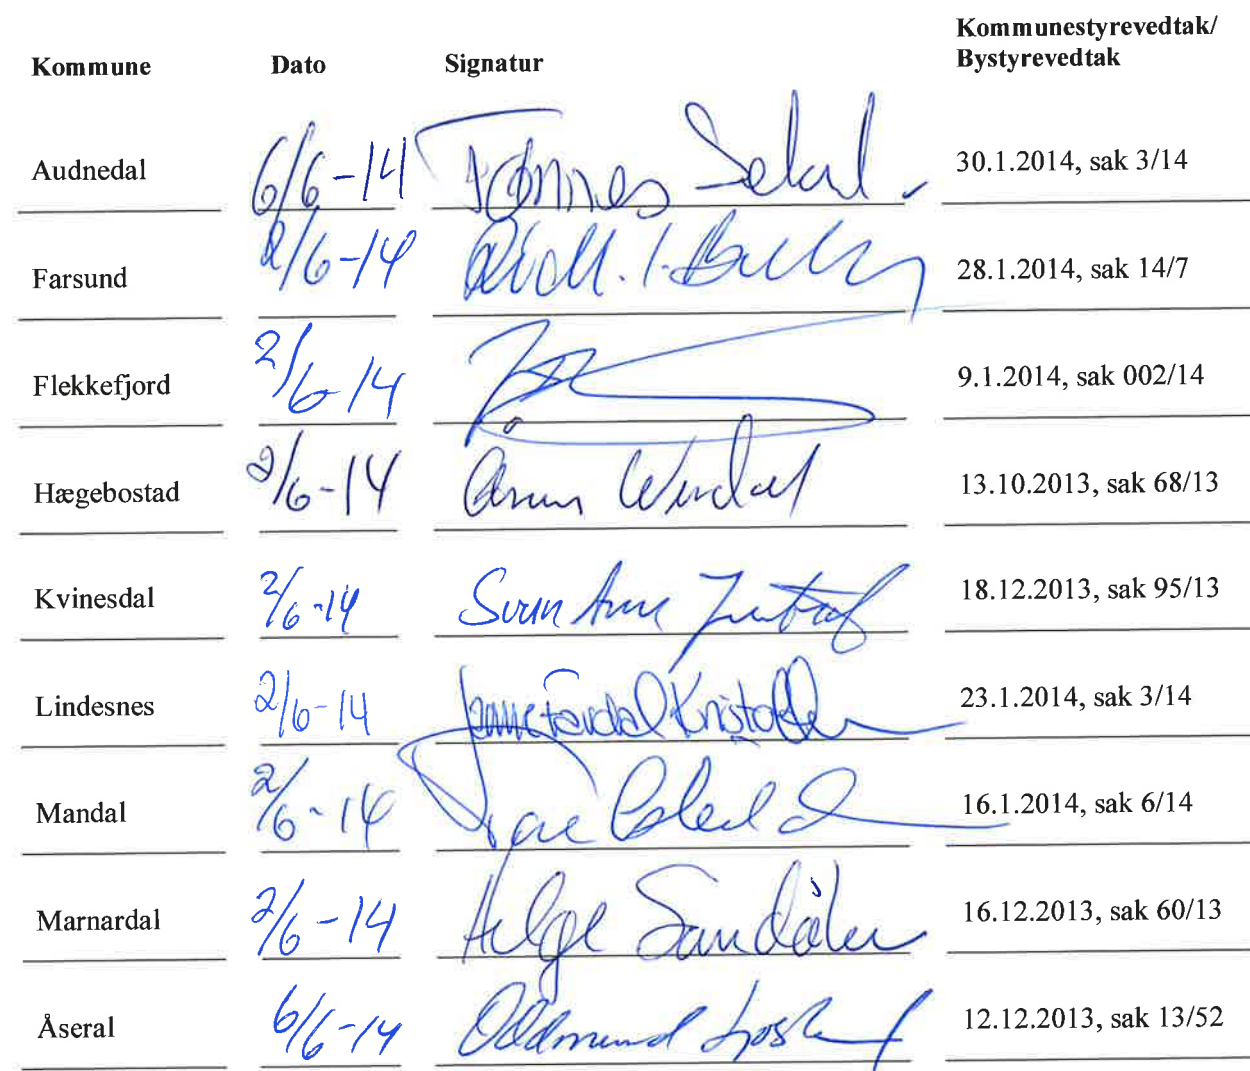 Kommune Dato Signatur Kommunestyrevedtak/
Bystyrevedtak
Audnedal 6/6-14 Tønnes Seland 30.1.2014, sak 3/14
Farsund 2/6-14 28.1.2014, sak 14/7
Flekkefjord 2/6-14 9.1.2014, sak 002/14
Hægebostad 2/6-14 13.10.2013, sak 68/13
Kvinesdal 2/6-14 Svein Arne 18.12.2013, sak 95/13
Lindesnes 2/6-14 Janne Fardal Kristoffersen 23.1.2014, sak 3/14
Mandal 2/6-14 16.1.2014, sak 6/14
Marnardal 2/6-14 Helge Sandåker 16.12.2013, sak 60/13
Åseral 6/6-14 Oddmund 12.12.2013, sak 13/52